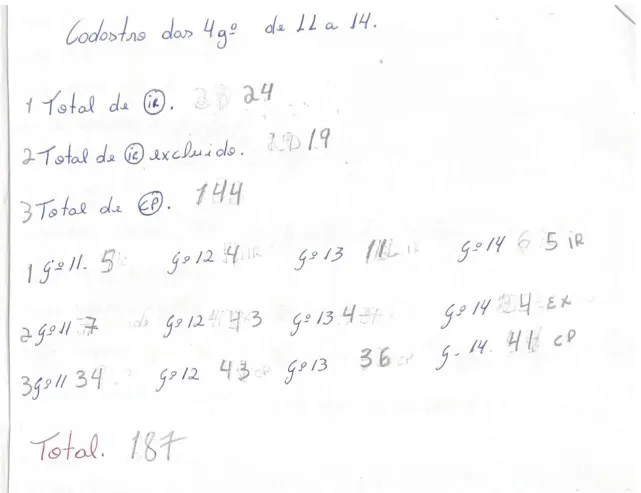 Codostro das 4gº de 11 a 14.
1 Total de iR. 24
2 Total de iR excluido. 19
3 Total de CP. 144
1 gº11. 5 gº12 4 gº13 11 gº14 5 iR
2 gº11 7 gº12 3 gº13 4 gº14 4 EX
3 gº11 34 gº12 43 gº13 36 g. 14. 41 CP
Total. 187